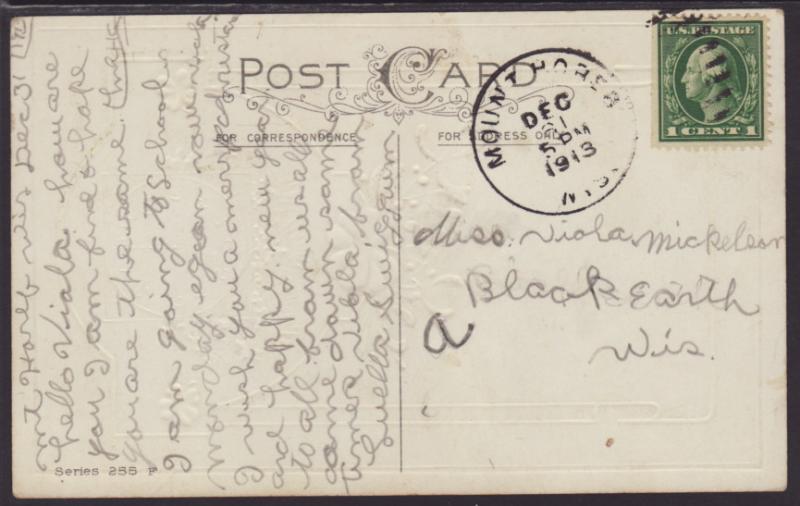 POST CARD
FOR CORRESPONDENCE
FOR ADDRESS ONLY
U.S. POSTAGE
1 CENT 1
MOUNT HOREB
DEC
5 PM
1913
WIS.
Miss. Viola Mickelson
Black Earth
Wis.
a
mt Horeb wis Dec 31
hello Viola how are
you I am find & hope
you are the same
I am going to School
monday egean now wich
I wish you a merry christmas
and happy new year
to all fram us all
come down some
times Vibla fram
Luella Swiggum
Series 255 F